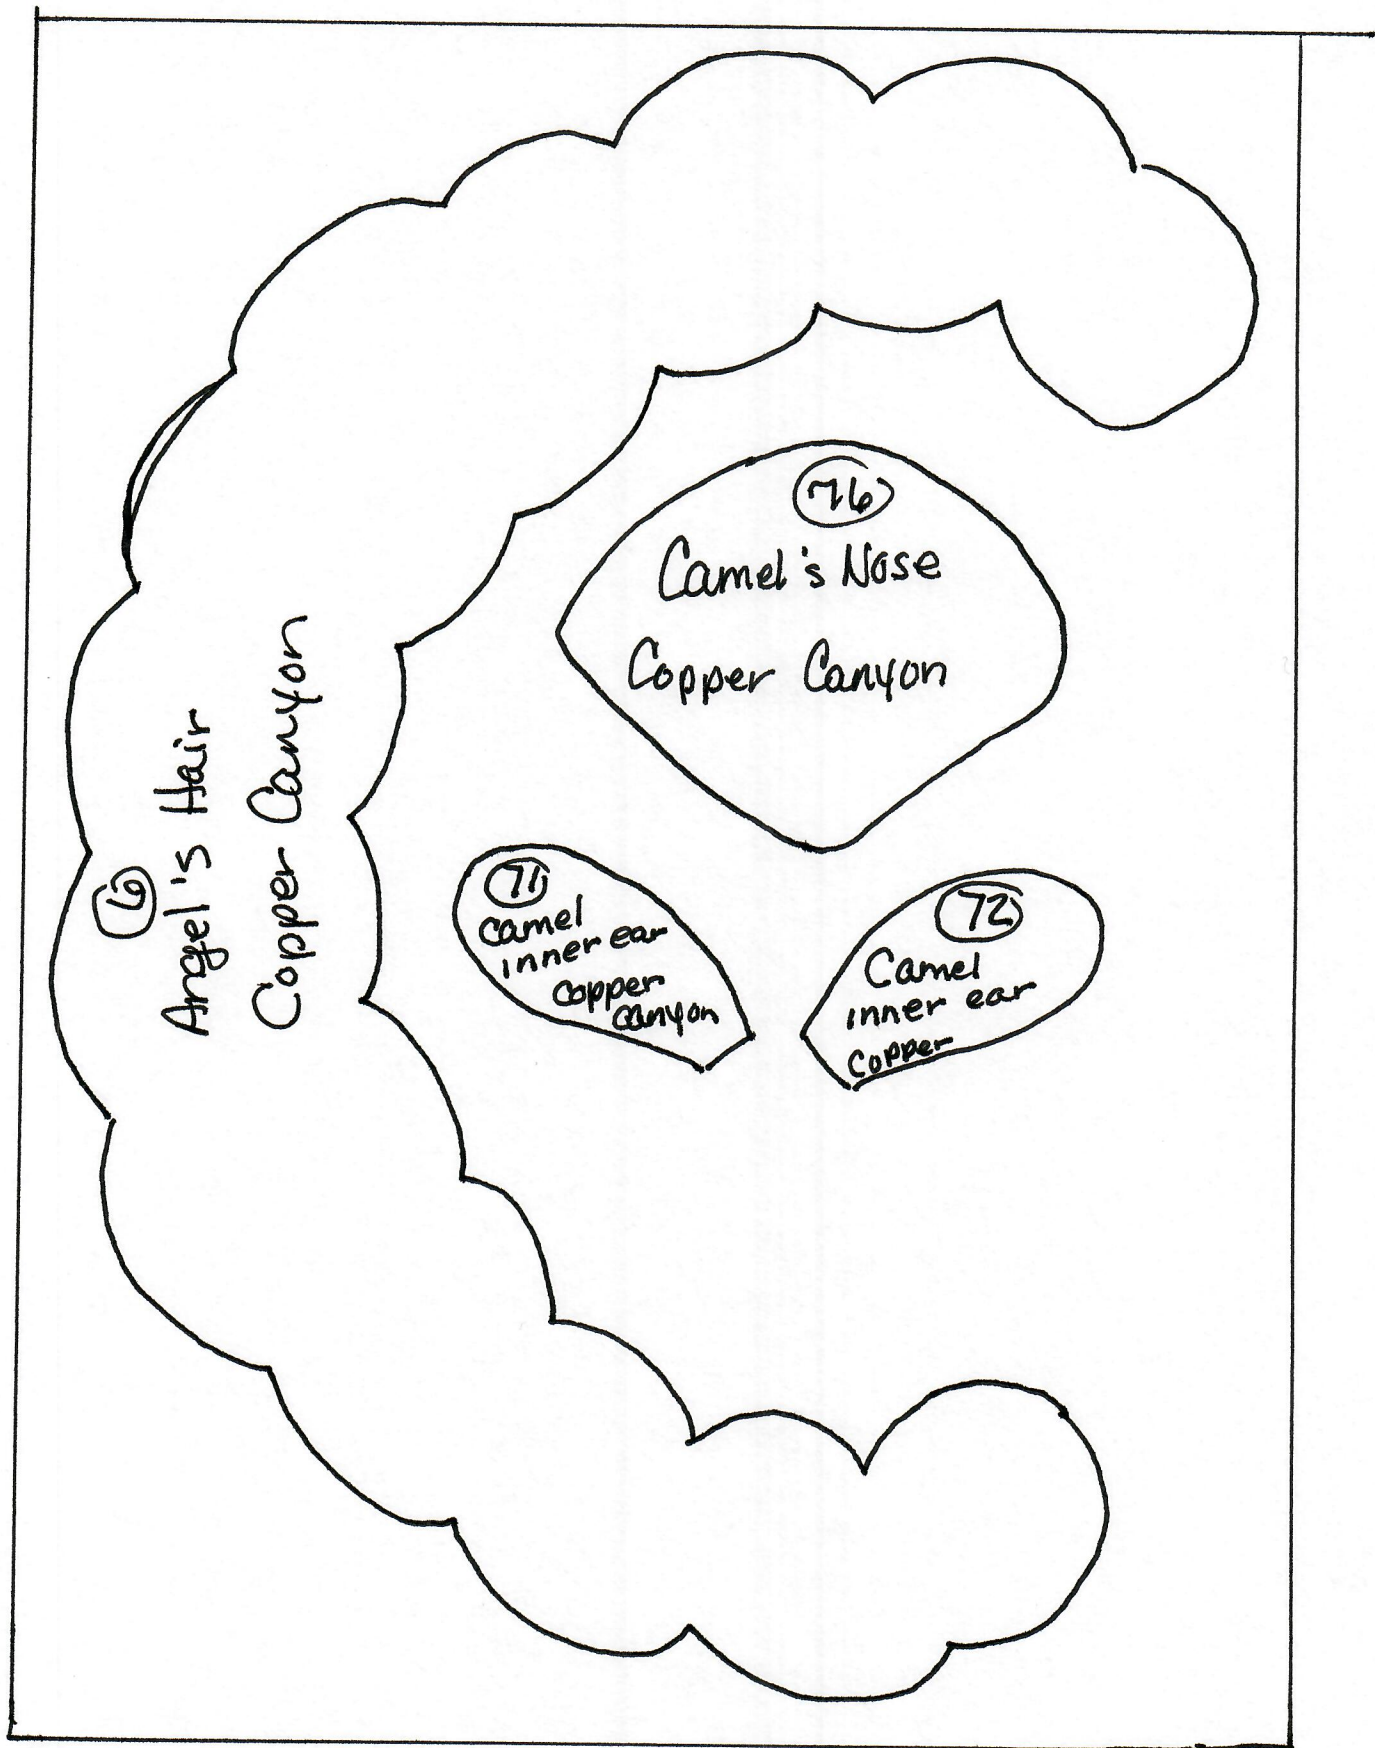 76
Camel's Nose
Copper Canyon
6
Angel's Hair
Copper Canyon
71
camel
inner ear
copper
canyon
72
Camel
inner ear
copper